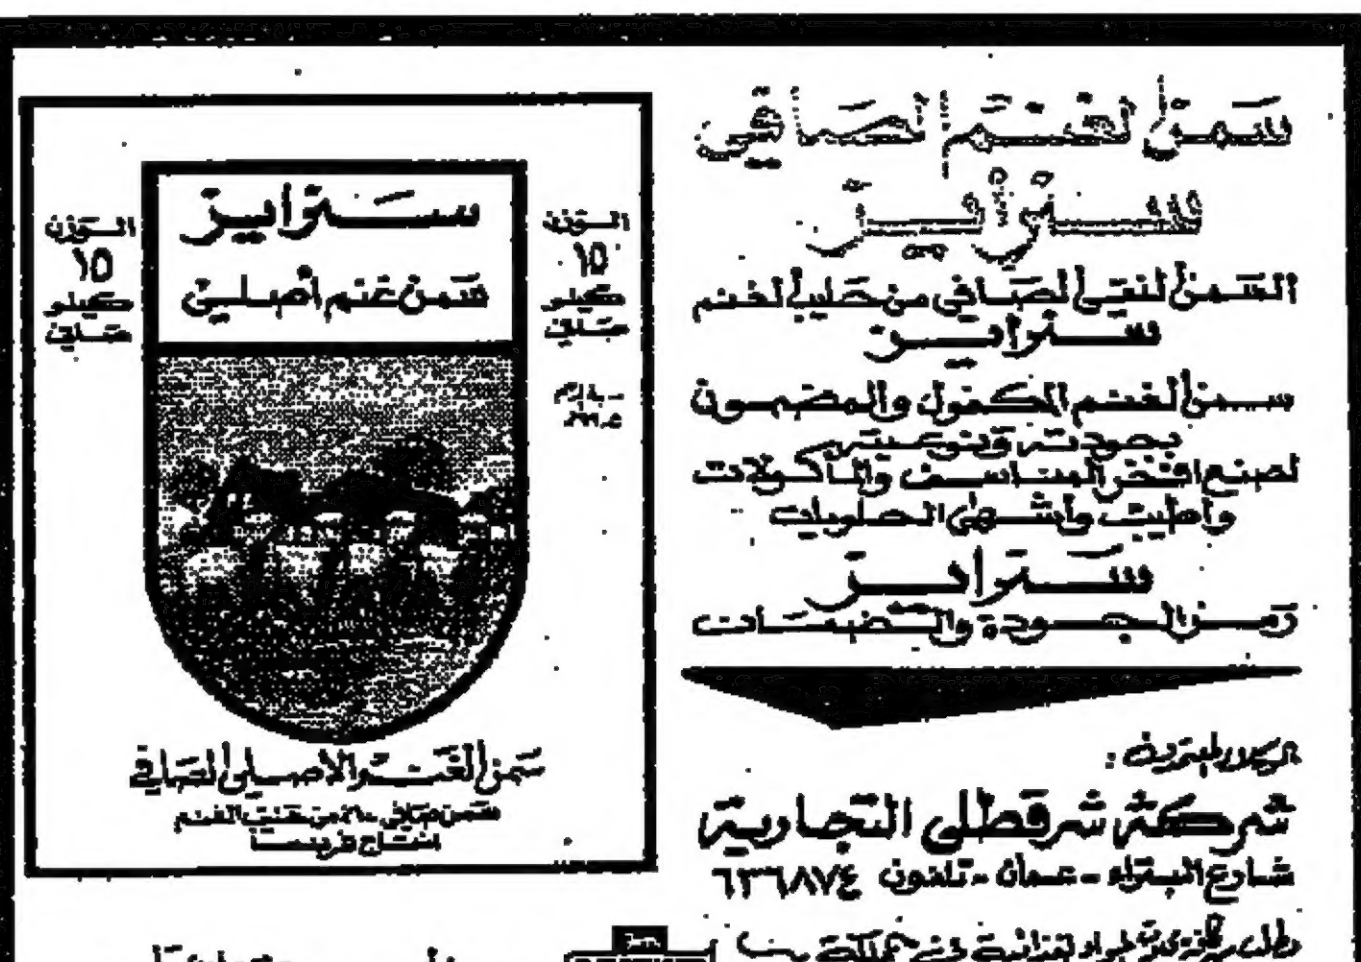 سمن الغنم الصافي
ستراير
السمن النقي الصافي من حليب الغنم
ستراير
سمن الغنم المكفول والمضمون
بجودته ونوعيته
لصنع افخر المناسف والمأكولات
وأطيب وأشهى الحلويات
ستراير
رمز الجودة والضمان
الوكلاء
شركة شرقطلي التجارية
شارع البتراء - عمان - تلفون ٦٣٦٨٧٤
المواد الغذائية في
ستراير
سمن غنم أصلي
الوزن
١٥
كيلو
صافي
الوزن
١٥
كيلو
صافي
سمن الغنم الأصلي الصافي
سمن صافي من الغنم
انتاج فرنسا